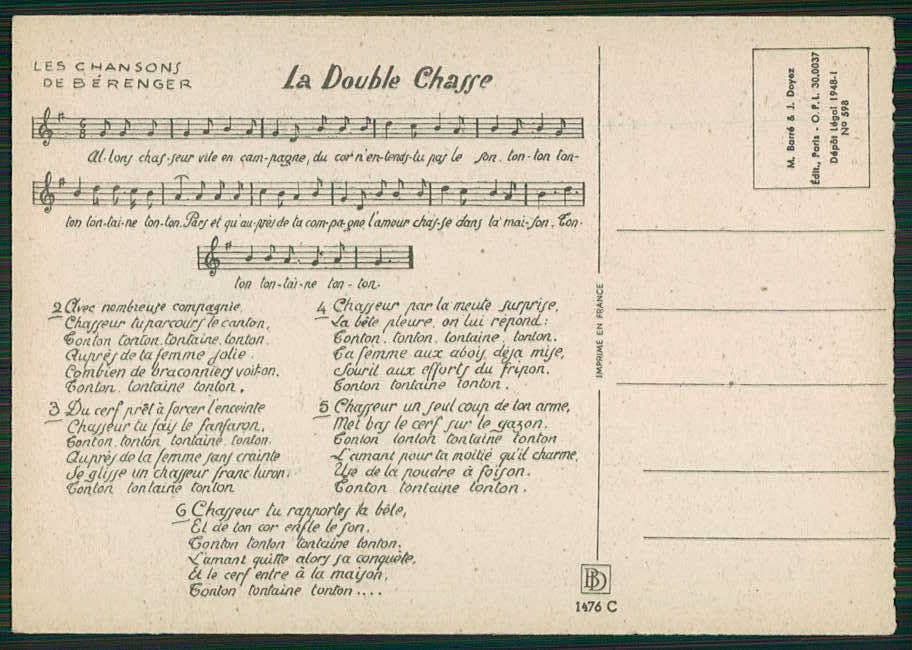 LES CHANSONS
DE BÉRENGER
La Double Chasse
Al-lons chas-seur vite en cam-pagne, du cor n'en-tends-tu pas le son. ton-ton ton-
ton ton-tai-ne ton-ton. Pars et qu'au-près de ta com-pa-gne l'amour chas-se dans ta mai-son. Ton-
ton ton-tai-ne ton-ton.
2 Avec nombreuse compagnie
Chasseur tu parcours le canton,
Tonton tonton, tontaine, tonton.
Auprès de ta femme jolie.
Combien de braconniers voit-on.
Tonton, tontaine tonton.
3 Du cerf prêt à forcer l'enceinte
Chasseur tu fais le fanfaron,
Tonton, tonton tontaine tonton.
Auprès de la femme sans crainte
Se glisse un chasseur franc luron.
Tonton tontaine tonton
4 Chasseur par la meute surprise,
La bête pleure, on lui répond:
Tonton, tonton, tontaine, tonton.
Ta femme aux abois, déja mise,
Sourit aux efforts du fripon.
Tonton tontaine tonton.
5 Chasseur un seul coup de ton arme,
Met bas le cerf sur le gazon.
Tonton tonton tontaine tonton
L'amant pour ta moitié qu'il charme,
Use de la poudre à foison.
Tonton tontaine tonton.
6 Chasseur tu rapportes la bête,
Et de ton cor enfle le son,
Tonton tonton tontaine tonton.
L'amant quitte alors sa conquête,
Et le cerf entre à la maison,
Tonton tontaine tonton....
IMPRIMÉ EN FRANCE
M. Barré & J. Dayez
Édit., Paris - O.P.I. 30.0037
Dépôt Légal 1948-I
N° 598
BD
1476 C